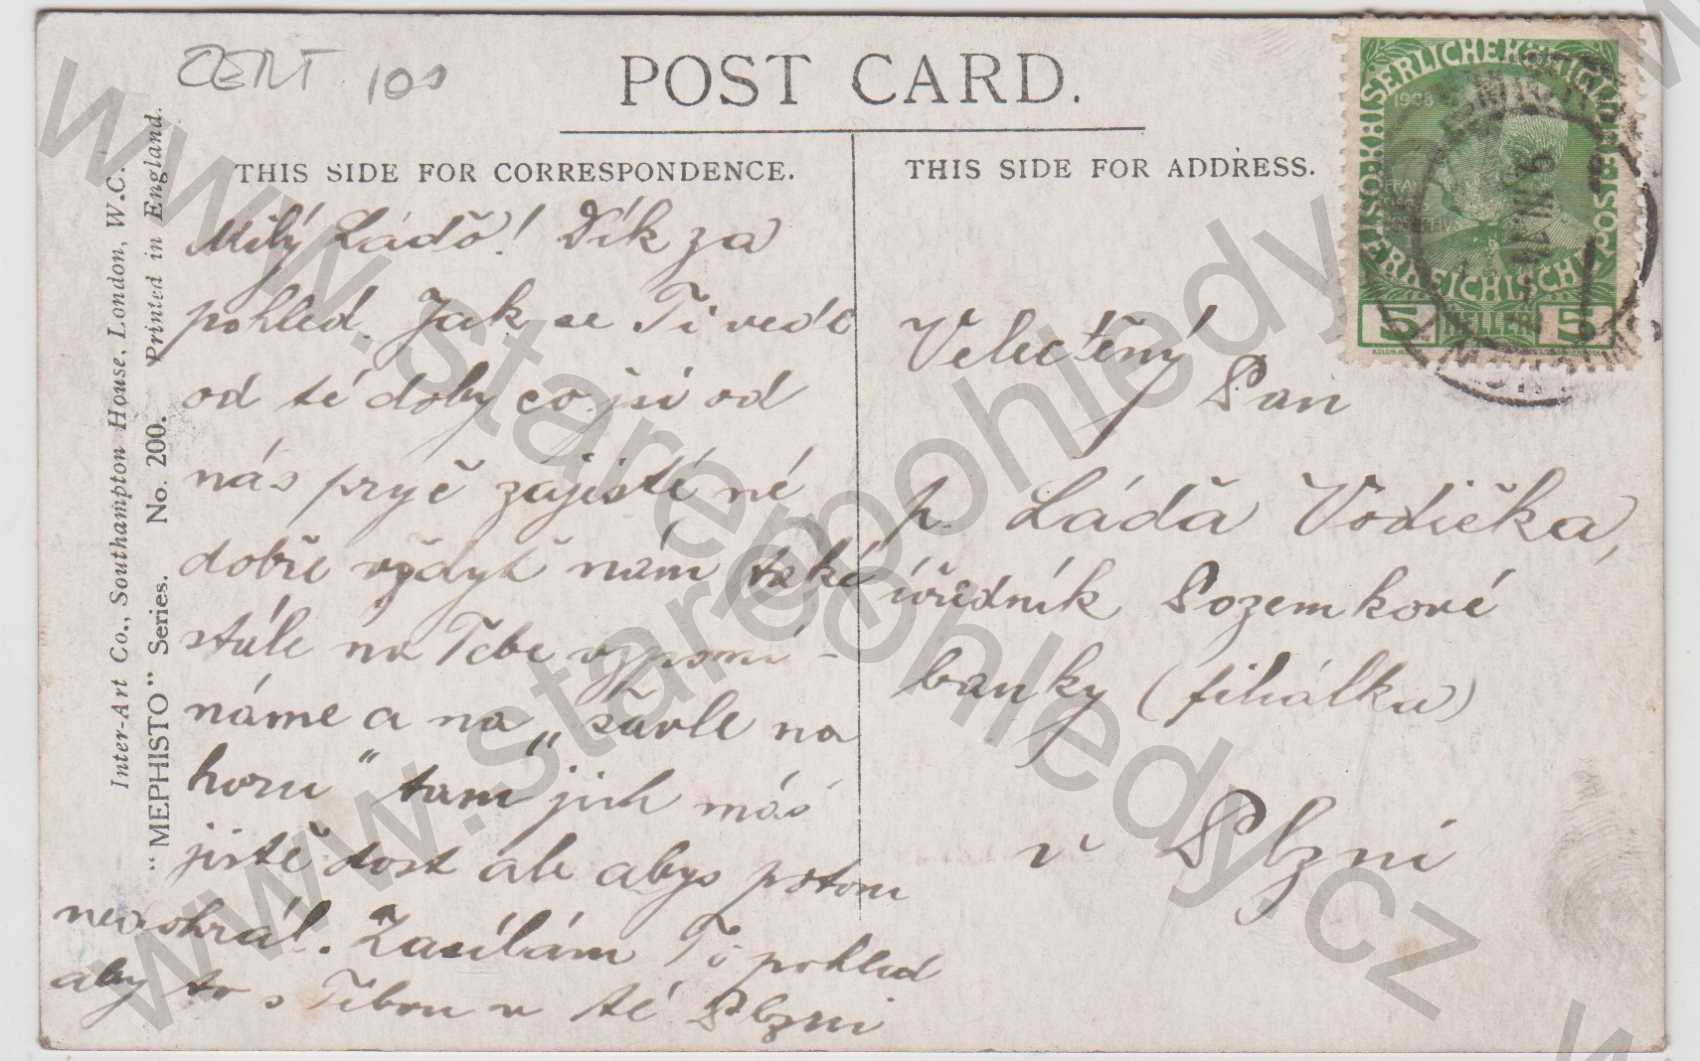 ČERT 100
POST CARD.
THIS SIDE FOR CORRESPONDENCE.
THIS SIDE FOR ADDRESS.
Inter-Art Co., Southampton House, London, W.C.
"MEPHISTO" Series. No. 200. Printed in England.
Milý Láďo! Dík za
pohled. Jak se Ti vede
od té doby co jsi od
nás pryč zajisté né
dobře vždyť nám také
stále na Tebe vzpomí-
náme a na „šavle na
horu" tam jich máš
jistě dost ale abys potom
Zasílám Ti pohled
aby to s Tebou v té Plzni
Velectěný
Pan
p. Láďa Vodička,
úředník Pozemkové
banky (filiálka)
v Plzni
KAISERLICHE KÖNIGLICHE
ÖSTERREICHISCHE
1908
5 HELLER 5
www.starepohledy.cz
www.starepohledy.cz